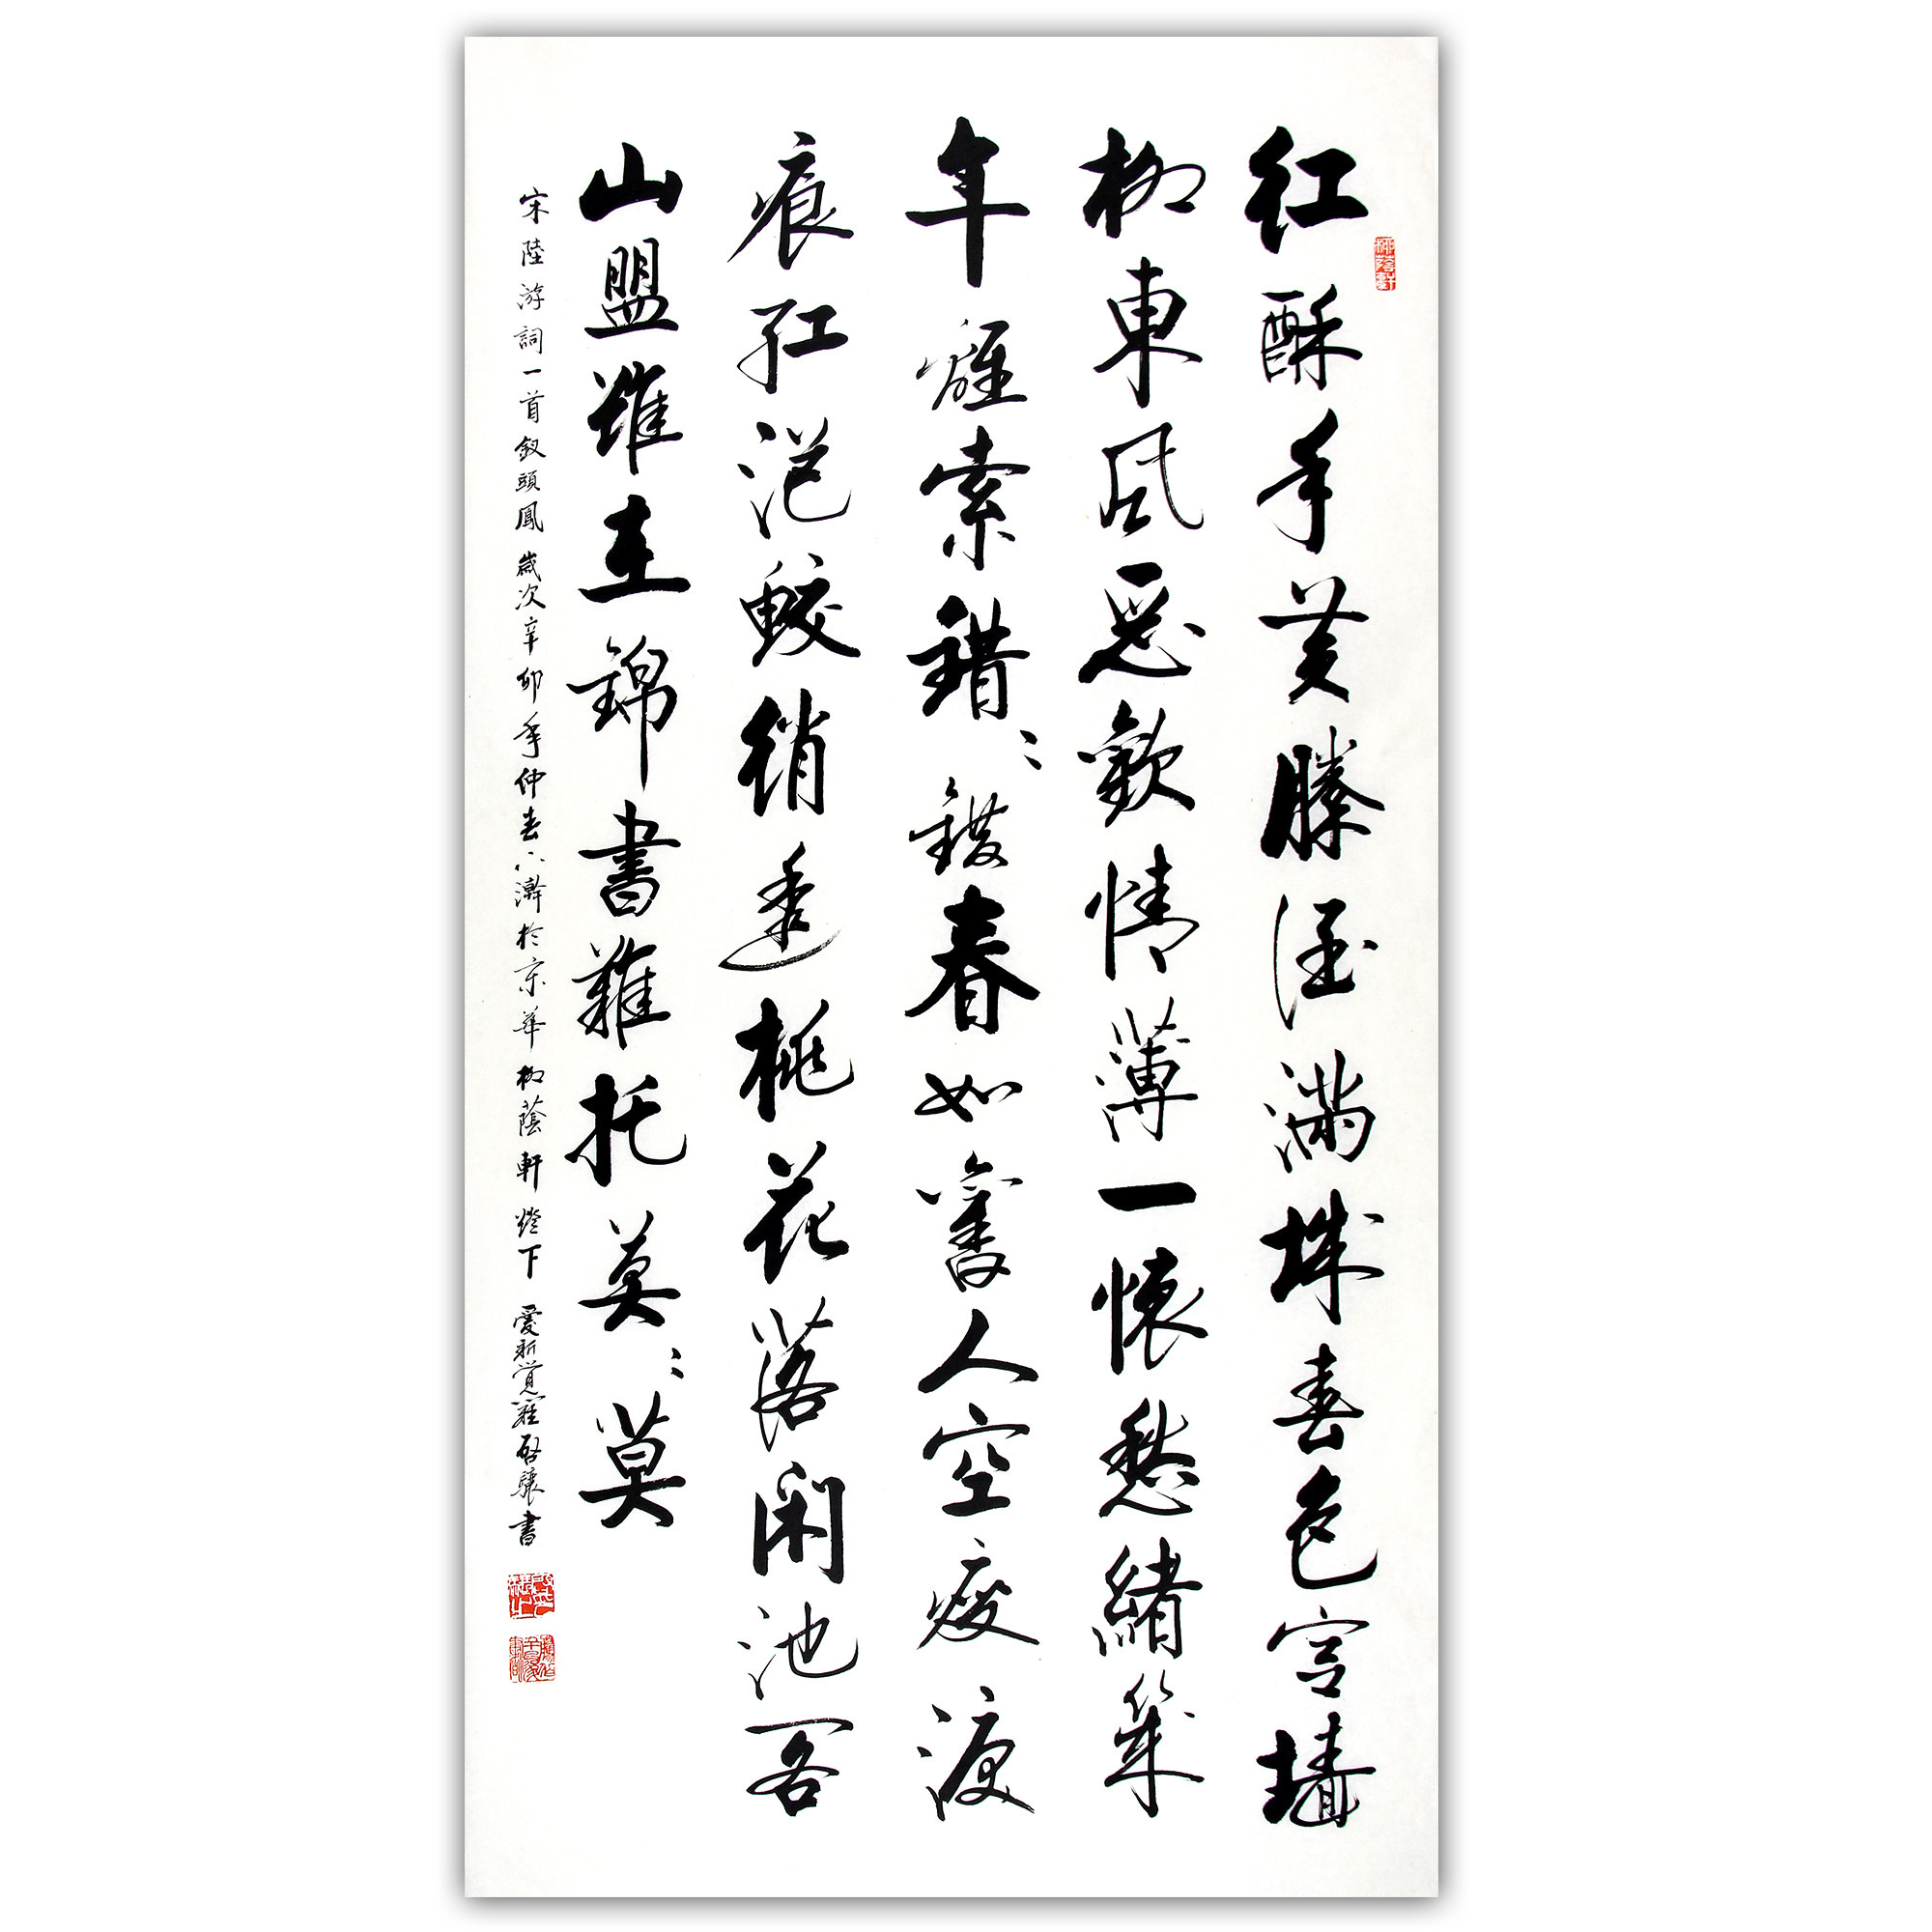 柳蔭軒
紅酥手黄縢酒滿城春色宫墻
柳東風惡歡情薄一懷愁緒幾
年離索錯〻錯春如舊人空瘦淚
痕紅浥鮫綃透桃花落閑池閣
山盟雖在錦書難托莫〻莫
宋陸游詞一首釵頭鳳歲次辛卯年仲春下澣於京華柳蔭軒燈下 愛新覺羅啓驤書